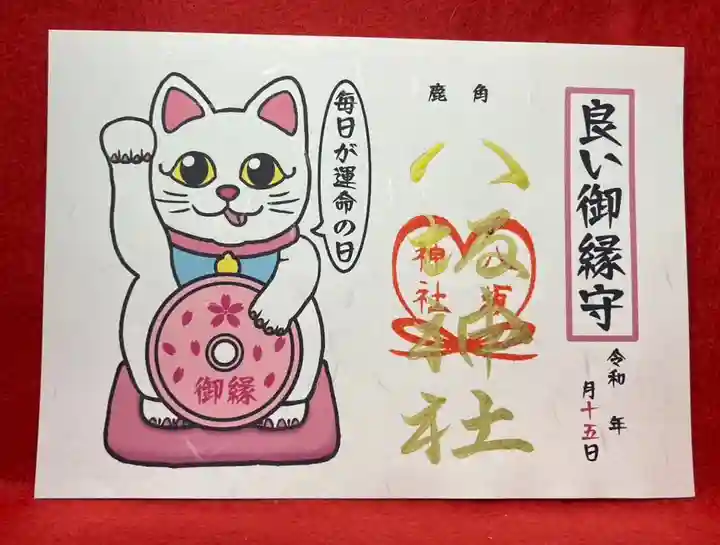 良い御縁守
令和 年
月十五日
鹿角
八坂神社
八坂
神社
毎日が運命の日
御縁